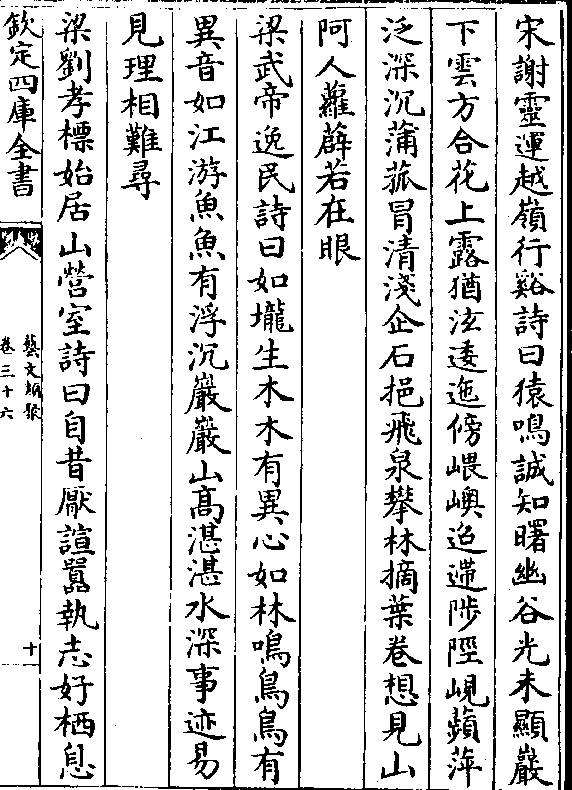 宋謝靈運越嶺行谿詩曰猿鳴誠知曙幽谷光未顯巖
下雲方合花上露猶泫逶迤傍嵔嶼迢遰陟陘峴蘋萍
泛深沉蒲菰冒清淺企石挹飛泉攀林摘葉卷想見山
阿人蘿薜若在眼
梁武帝逸民詩曰如壠生木木有異心如林鳴鳥鳥有
異音如江游魚魚有浮沉巖巖山高湛湛水深事迹易
見理相難尋
梁劉孝標始居山營室詩曰自昔厭諠囂執志好栖息
欽定四庫全書
藝文類聚
卷三十六
十